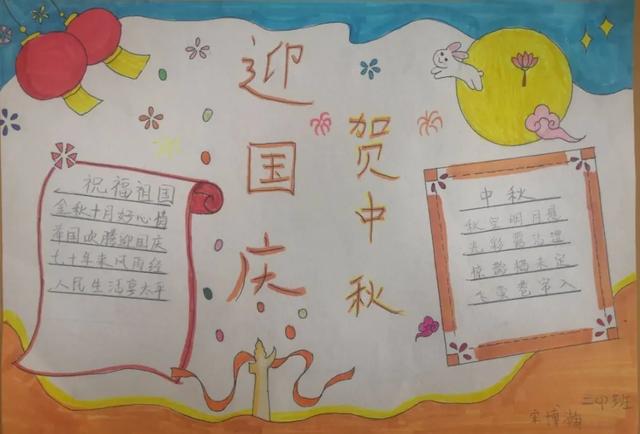 迎国庆
贺中秋
祝福祖国
金秋十月好心情
举国欢腾迎国庆
七十年来风雨经
人民生活享太平
中秋
秋空明月悬
光彩露沾湿
惊鹊栖未定
飞萤卷帘入
二中班
宋博瀚